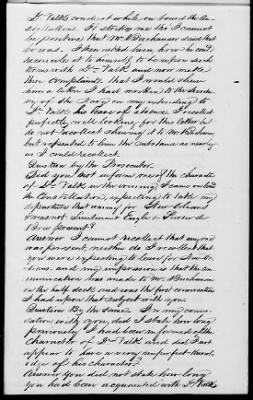 Dr. Valk's conduct while on board the Con-
stellation. It strikes me tho' I cannot
be positive that Mr. Buchanan said that
he was. I then asked him how he could
reconcile it to himself to be upon such
terms with Dr. Valk and now make
these complaints. That I would show
him a letter I had written to the Secreta-
ry of the Navy on my referring to
Dr. Valk his base of abuse. I recollect
perfectly well looking for this letter, but
do not recollect showing it to Mr. Buchanan
but repeated to him the substance as nearly
as I could recollect.
Question by the Prosecutor.
Did you not inform me of the character
of Dr. Valk in the evening I came on board
the Constellation, expecting to take my
departure that evening for New Orleans
& was not Lieutenant Engle & Purser de
Bree present?
Answer I cannot recollect that anyone
was present, neither do I recollect that
you were expecting to leave for New Or-
leans. and my impression is that the com-
munication was made to Mr. Buchanan
on the half deck and was the first conversation
I had upon that subject with you.
Question By the Same. In my conver-
sation with you, did I state how long
previously I had been informed of the
character of Dr. Valk and did I not
appear to have a very imperfect knowl-
edge of his character?
Answer You did not state how long
you had been acquainted with Dr. Valk